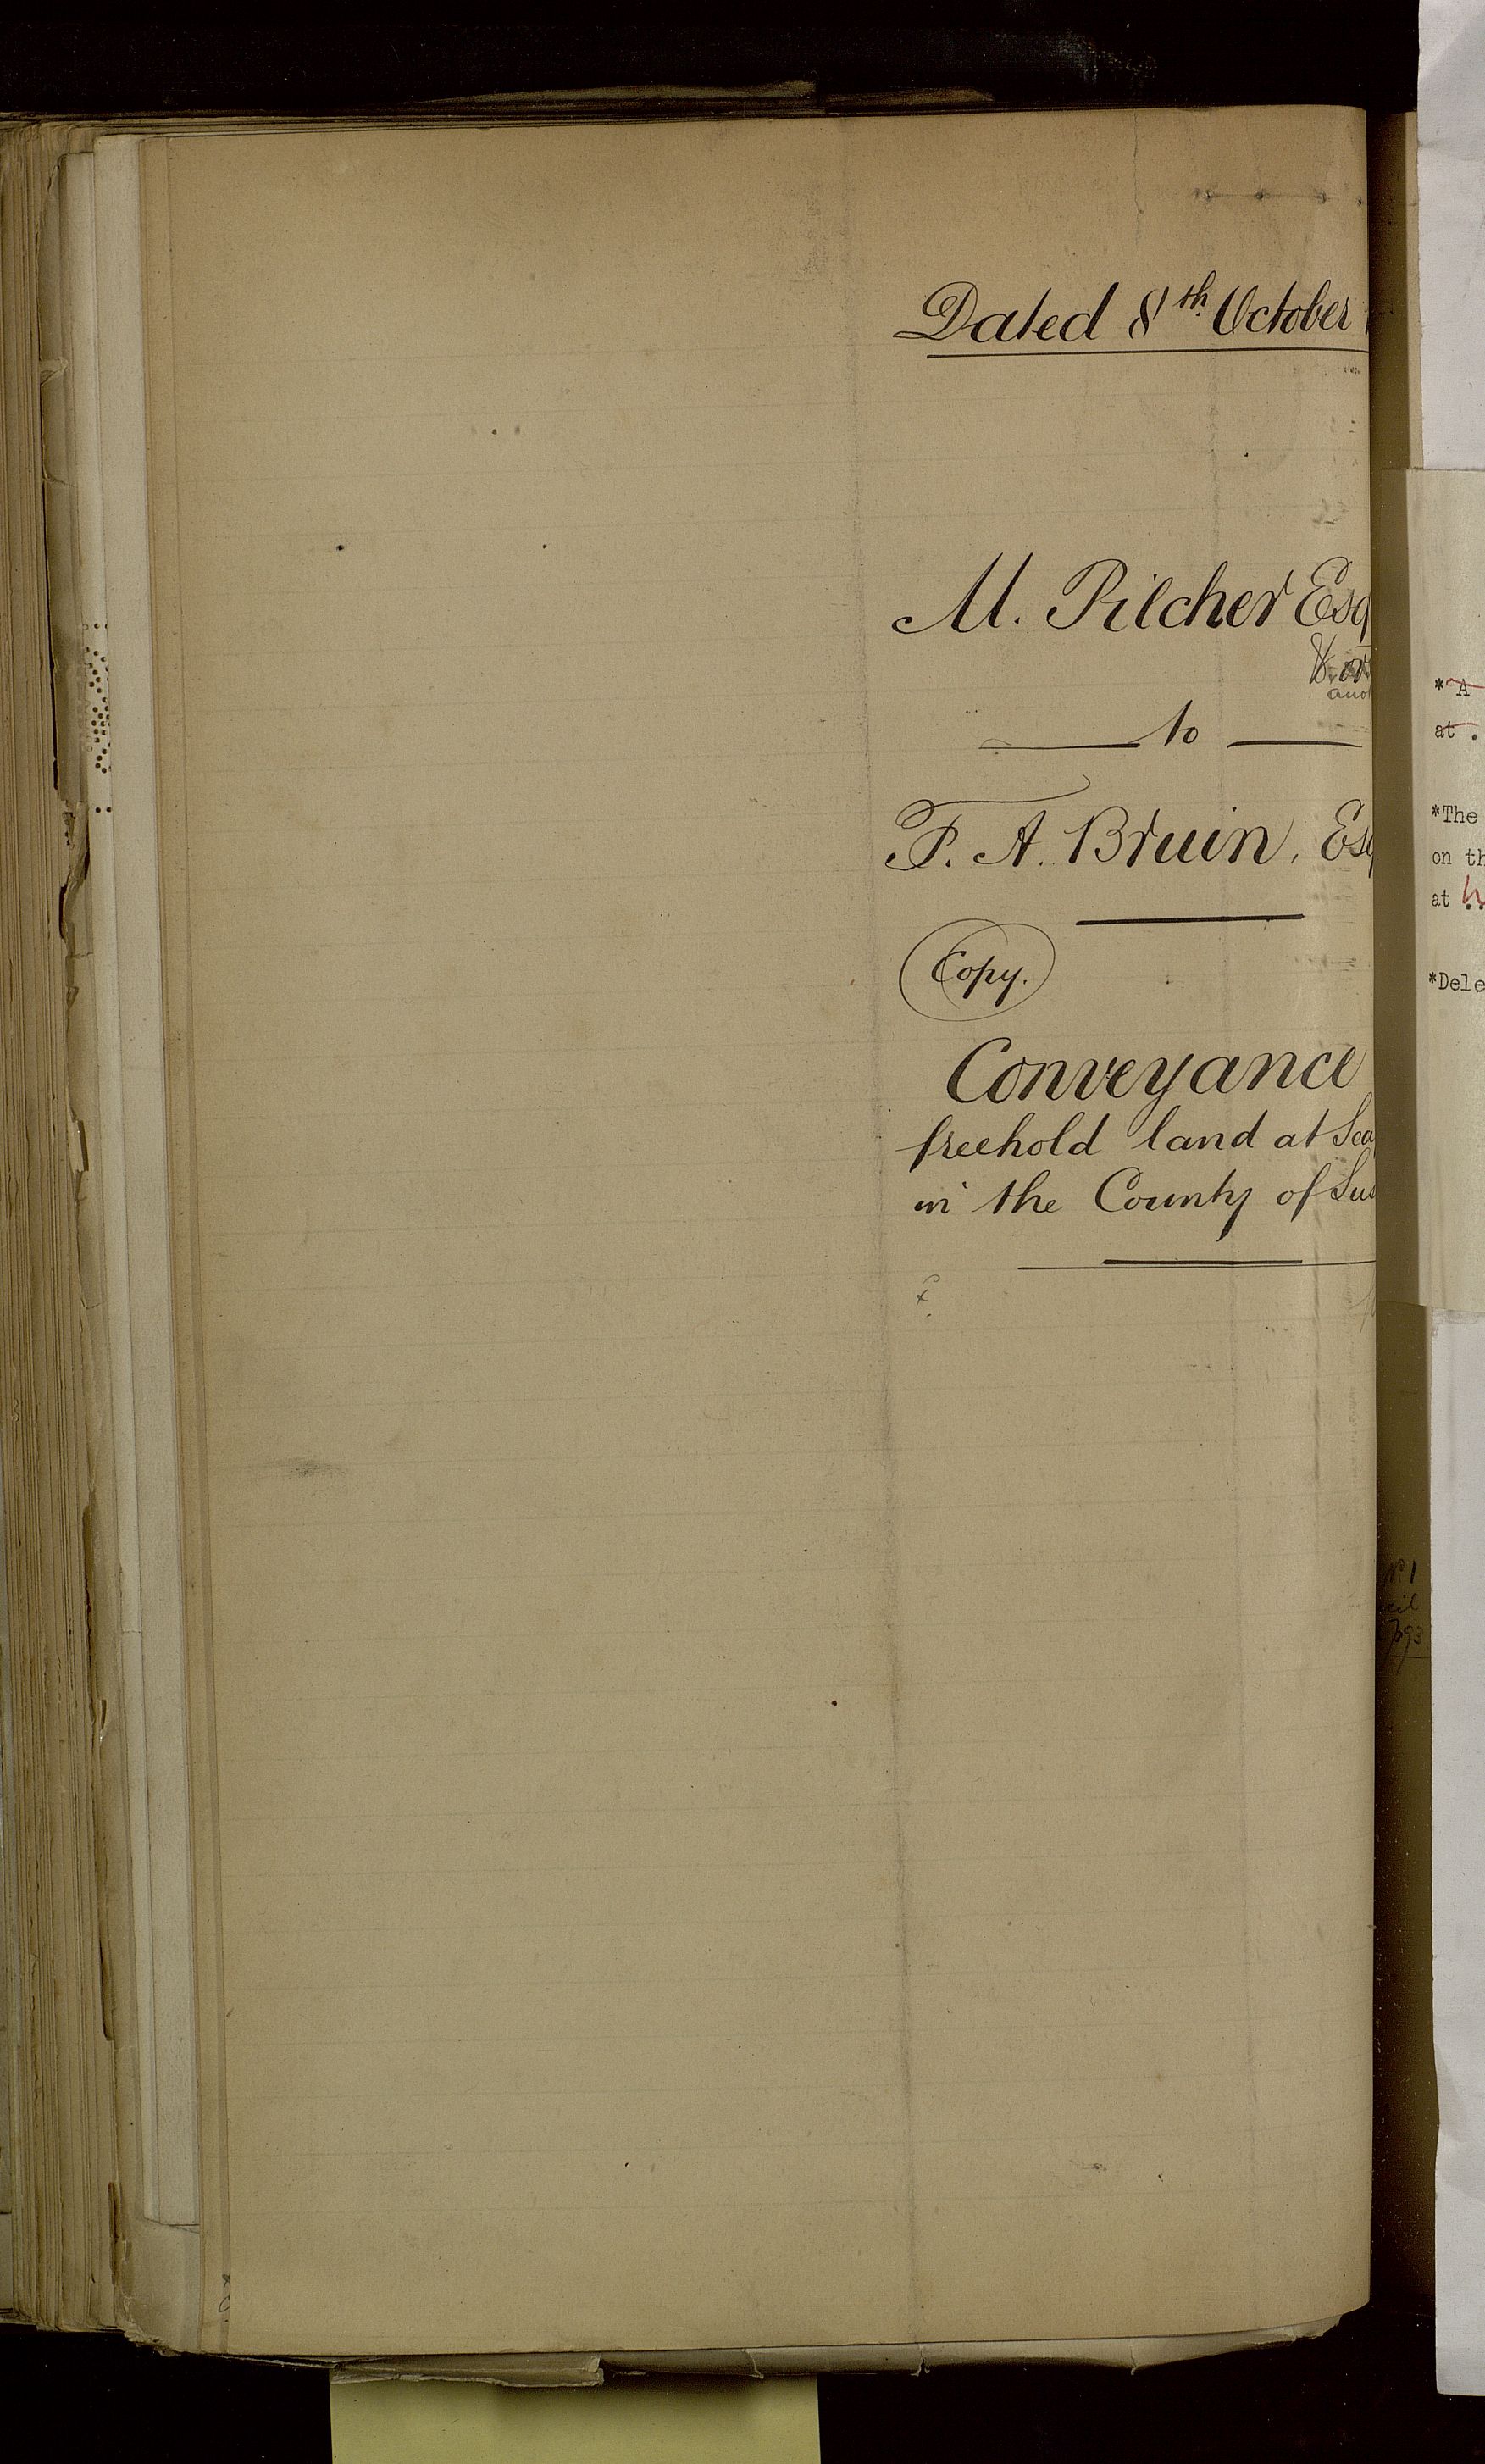 Dated 8th October
M. Pilcher Esq
&
ano
to
F. A. Bruin, Esq
Copy.
Conveyance
freehold land at Sea
in the County of Sus
*A
at .
*The
on th
at
*Dele
No. 1